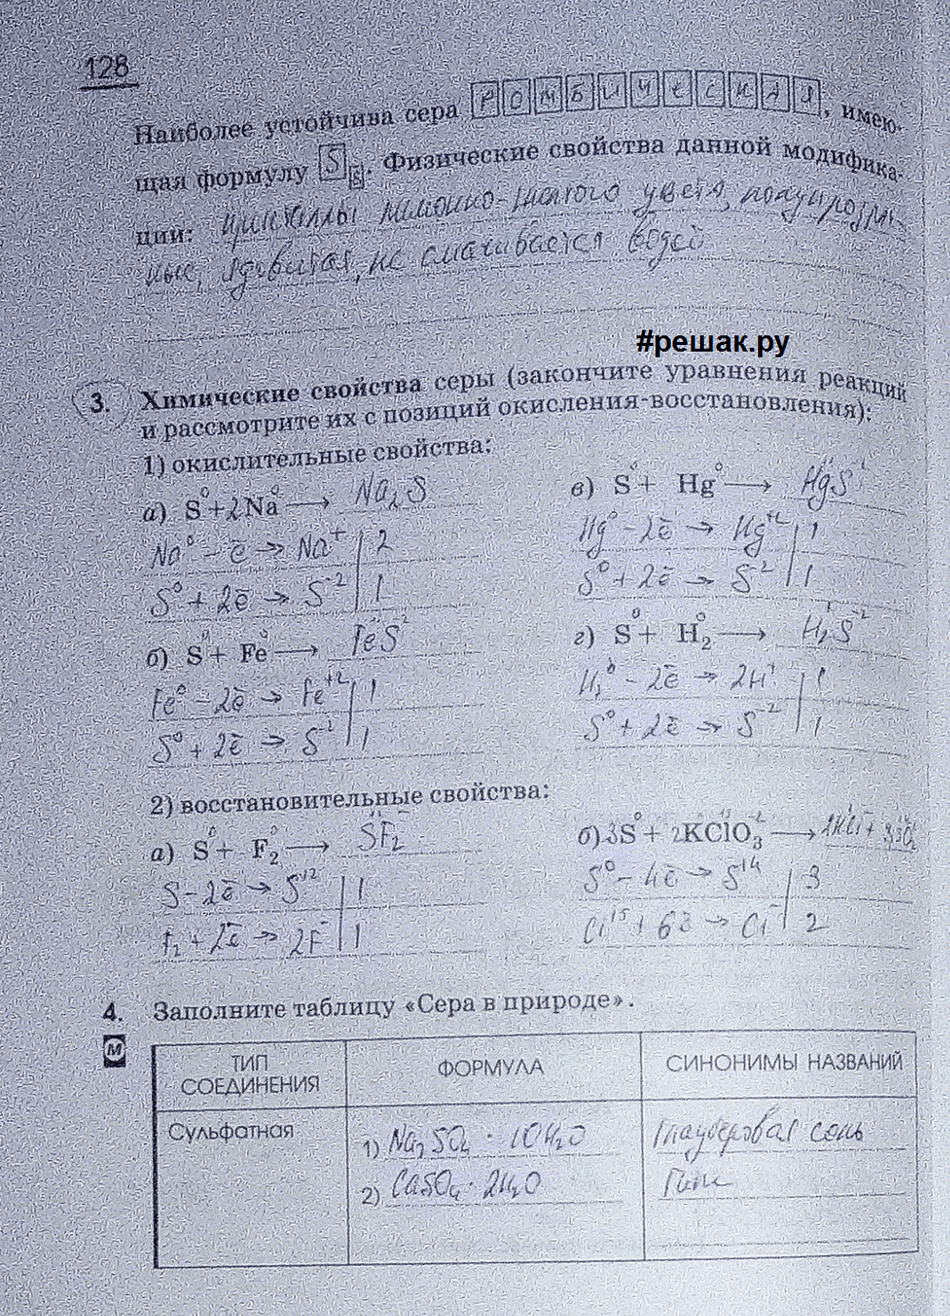 128
Наиболее устойчива сера РОМБИЧЕСКАЯ, имею-
щая формулу S8. Физические свойства данной модифика-
ции: кристаллы лимонно-желтого цвета, полупрозрач-
ные, ядовитая, не смачивается водой
#решак.ру
3. Химические свойства серы (закончите уравнения реакций
и рассмотрите их с позиций окисления-восстановления):
1) окислительные свойства:
а) S⁰ + 2Na⁰ → Na₂S
в) S⁰ + Hg⁰ → HgS
Na⁰ – ē → Na⁺ | 2
Hg⁰ – 2ē → Hg⁺² | 1
S⁰ + 2ē → S⁻² | 1
S⁰ + 2ē → S⁻² | 1
б) S⁰ + Fe⁰ → FeS
г) S⁰ + H₂⁰ → H₂S
Fe⁰ – 2ē → Fe⁺² | 1
H₂⁰ – 2ē → 2H⁺ | 1
S⁰ + 2ē → S⁻² | 1
S⁰ + 2ē → S⁻² | 1
2) восстановительные свойства:
а) S⁰ + F₂⁰ → SF₂
б) 3S⁰ + 2KClO₃ → 2KCl + 3SO₂
S – 2ē → S⁺² | 1
S⁰ – 4ē → S⁺⁴ | 3
F₂ + 2ē → 2F⁻ | 1
Cl⁺⁵ + 6ē → Cl⁻ | 2
4. Заполните таблицу «Сера в природе».
М
ТИП СОЕДИНЕНИЯ ФОРМУЛА СИНОНИМЫ НАЗВАНИЙ
Сульфатная
1) Na₂SO₄ · 10H₂O Глауберовая соль
2) CaSO₄ · 2H₂O Гипс